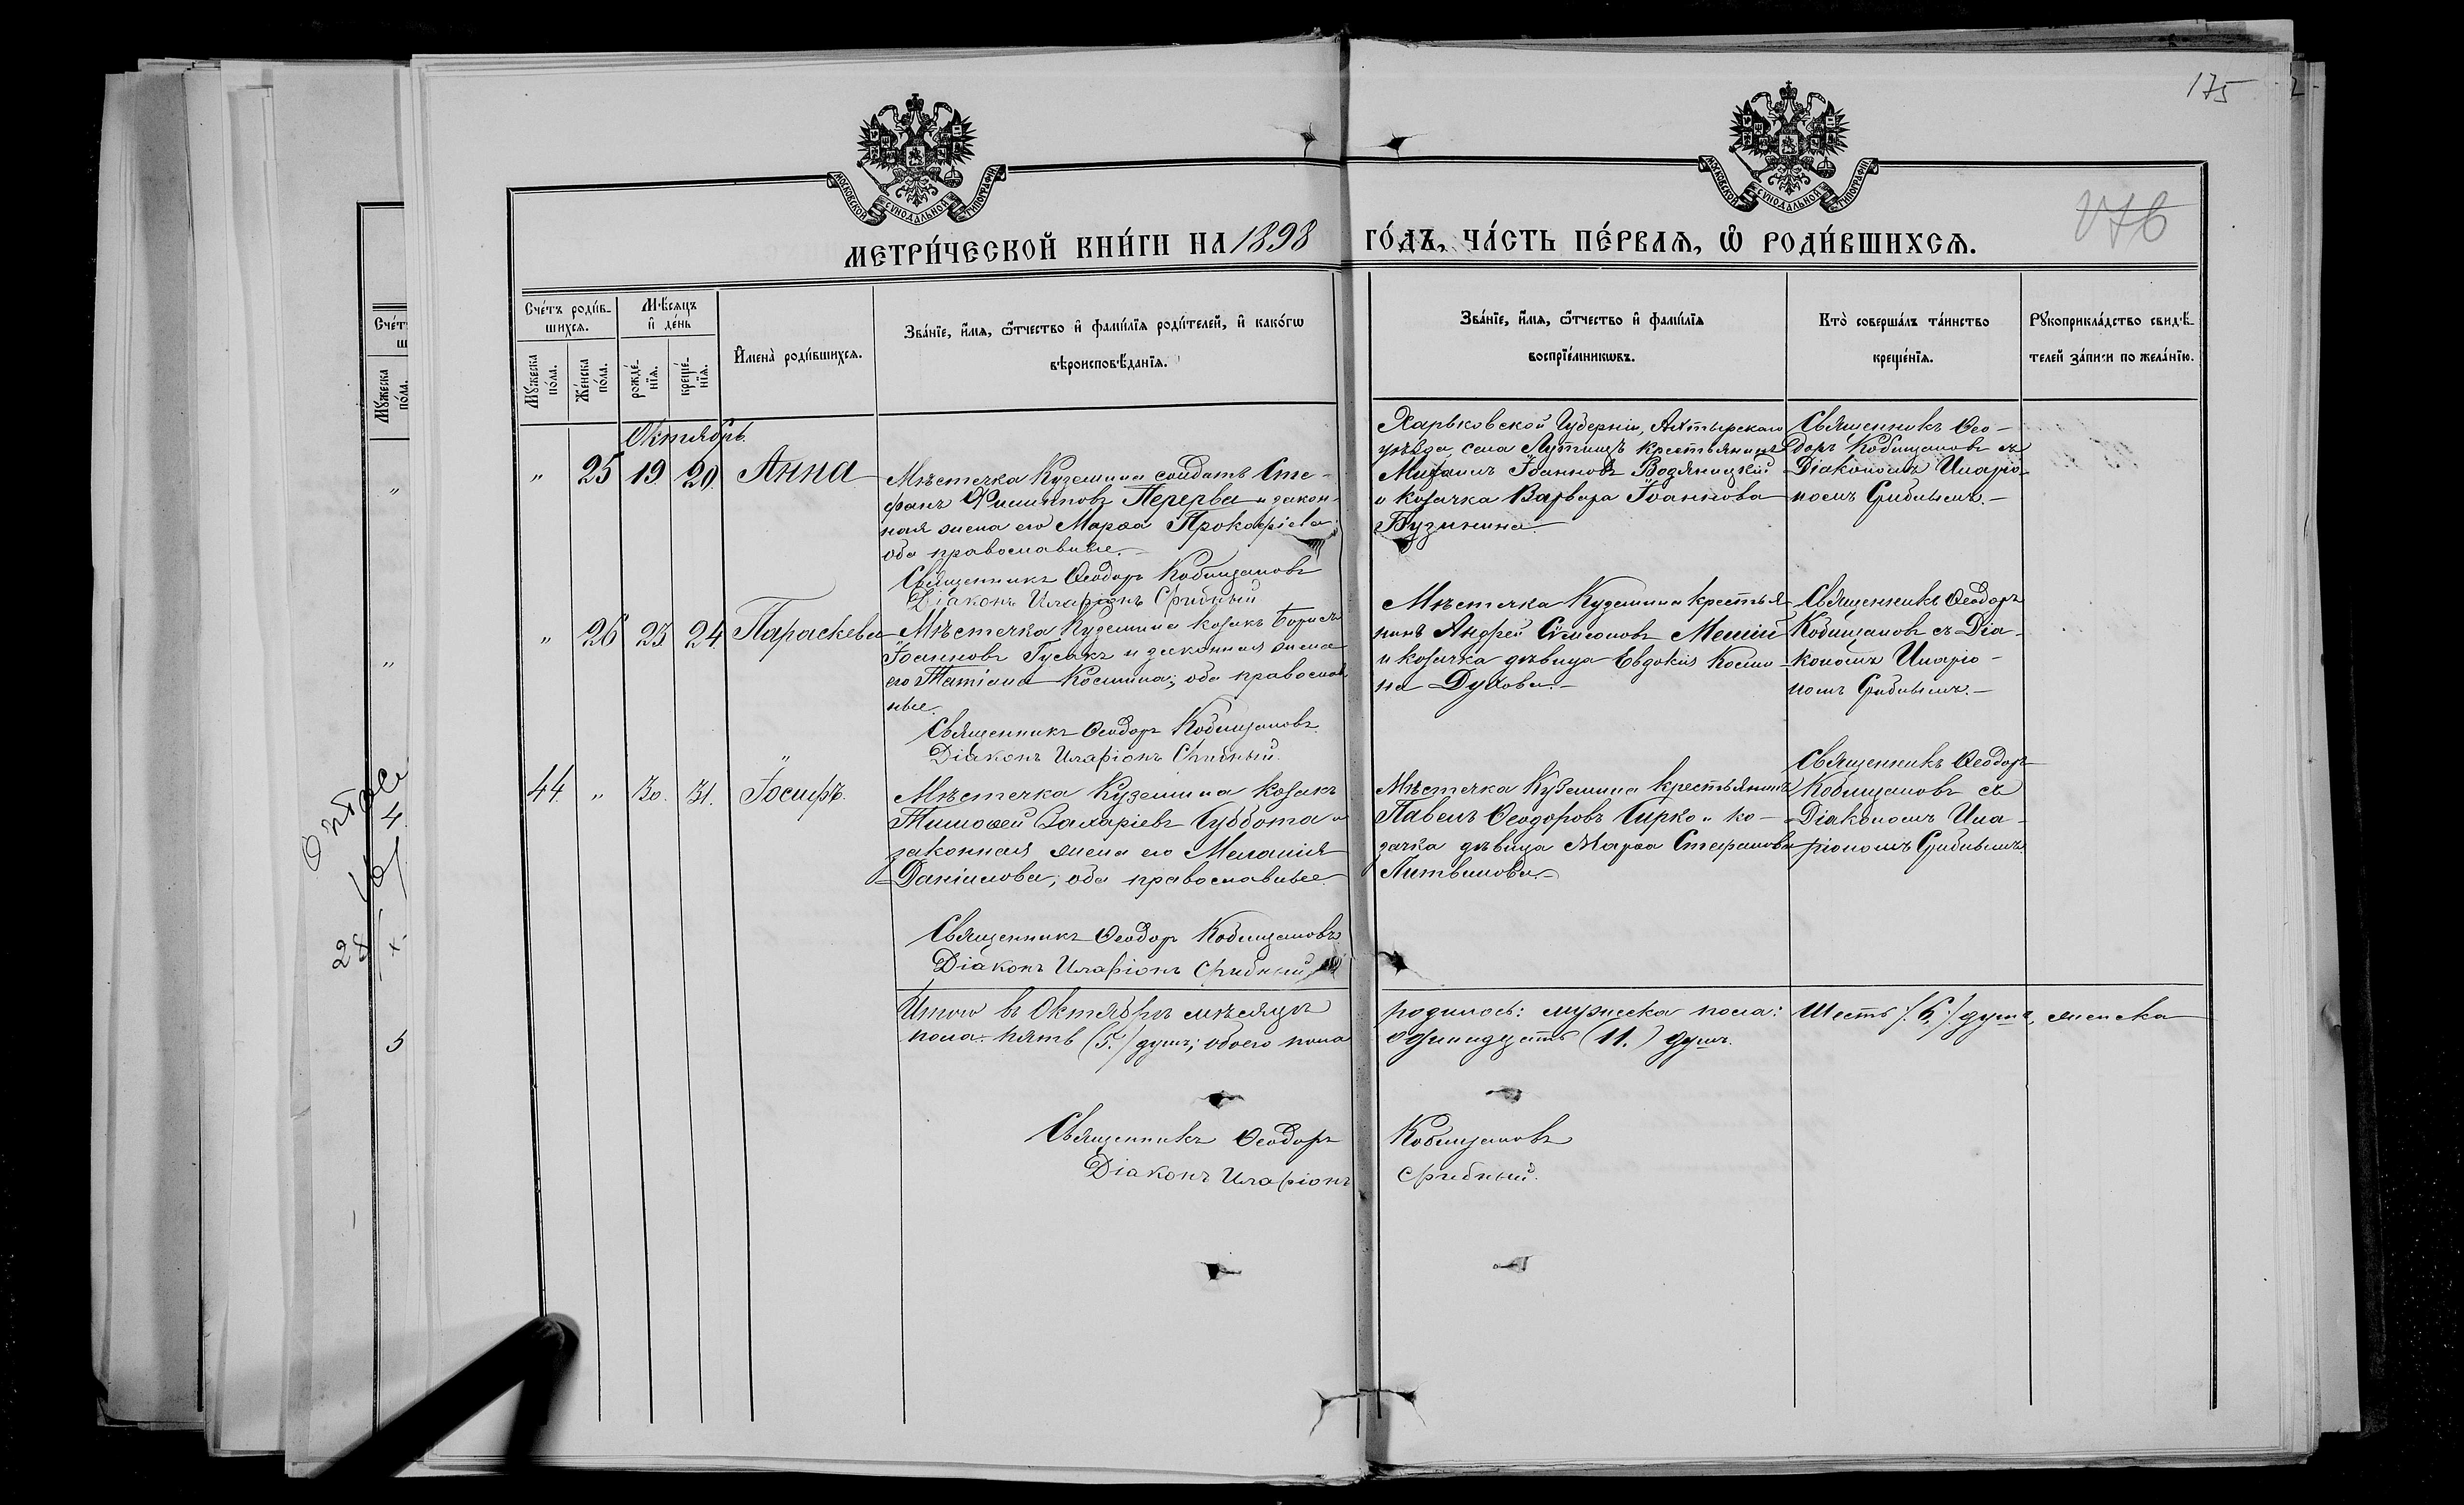 175
176
МОСКОВСКОЙ СУНОДАЛЬНОЙ ТИПОГРАФІИ
МОСКОВСКОЙ СУНОДАЛЬНОЙ ТИПОГРАФІИ
МЕТРИ́ЧЕСКОЙ КНИ́ГИ НА 1898 ГО́ДЪ, ЧА́СТЬ ПЕ́РВАѦ, Ѡ҆ РОДИ́ВШИХСѦ.
Сче́тъ роди́в-
шихсѧ.
Мꙋ́жеска по́ла.
Же́нска по́ла.
Мѣ́сѧцъ
и҆ де́нь
рожде́-нїѧ.
креще́-нїѧ.
И҆мена̀ роди́вшихсѧ.
Зва́нїе, и҆́мѧ, ѻ҆́тчество и҆ фами́лїѧ роди́телей, и҆ како́гѡ
вѣроисповѣ́данїѧ.
Зва́нїе, и҆́мѧ, ѻ҆́тчество и҆ фами́лїѧ
воспрїе́мникѡвъ.
Кто̀ соверша́лъ та́инство
креще́нїѧ.
Рꙋкоприкла́дство свидѣ́-
телей за́писи по жела́нїю.
Октябрь
" 25 19 20. Анна
Мѣстечка Куземина солдатъ Сте-
фанъ Филипповъ Перерва и закон-
ная жена его Марѳа Прокофіева
оба православные.
Священникъ Ѳеодоръ Кобищановъ
Діаконъ Иларіонъ Срибный
Харьковской Губерніи, Ахтырскаго
уѣзда, села Лутищъ крестьянинъ
Михаилъ Іоанновъ Водяницкій
и козачка Варвара Іоаннова
Бузинина
Священникъ Ѳео-
доръ Кобищановъ съ
Діакономъ Иларіо-
номъ Срибнымъ.
" 26 23 24. Параскева
Мѣстечка Куземина козакъ Борисъ
Іоанновъ Гусакъ и законная жена
его Татіана Космина; оба православ
ные.
Священникъ Ѳеодоръ Кобищановъ
Діаконъ Иларіонъ Срибный.
Мѣстечка Куземина крестья
нинъ Андрей Сѵмеоновъ
и козачка дѣвица Евдокія Косми-
на Духова.
Священникъ Ѳеодоръ
Кобищановъ съ Діа-
кономъ Иларіо-
номъ Срибнымъ.
44. " 30. 31. Іосифъ.
Мѣстечка Куземина козакъ
Тимоѳей Захаріевъ Суббота и
законная жена его Меланія
Даніилова; оба православные
Священникъ Ѳеодоръ Кобищановъ
Діаконъ Иларіонъ Срибный
Мѣстечка Куземина крестьянинъ
Павелъ Ѳеодоровъ Сирко и ко-
зачка дѣвица Марѳа Стефанова
Литвинова.
Священникъ Ѳеодоръ
Кобищановъ съ
Діакономъ Ила-
ріономъ Срибнымъ.
Итого въ Октябрѣ мѣсяцѣ родилось: мужеска пола: Шесть /.6./ душъ, женска
пола: пять (5.) душъ; обоего пола одинадцать (11.) душъ.
Священникъ Ѳеодоръ Кобищановъ
Діаконъ Иларіонъ Срибный.
Сче́т
Мꙋ́жеска по́ла.
"
"
4
5